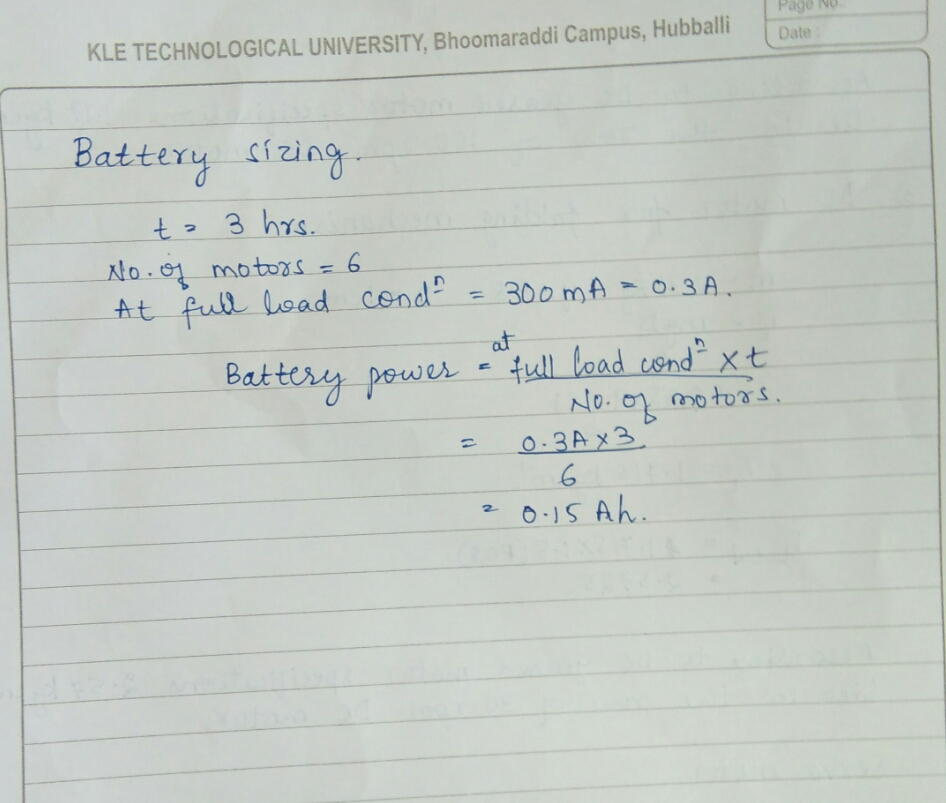 Page No.
KLE TECHNOLOGICAL UNIVERSITY, Bhoomaraddi Campus, Hubballi
Date :
Battery sizing.
t = 3 hrs.
No. of motors = 6
At full load condⁿ = 300 mA = 0.3A.
Battery power = at full load condⁿ x t
No. of motors.
= 0.3A x 3
6
= 0.15 Ah.